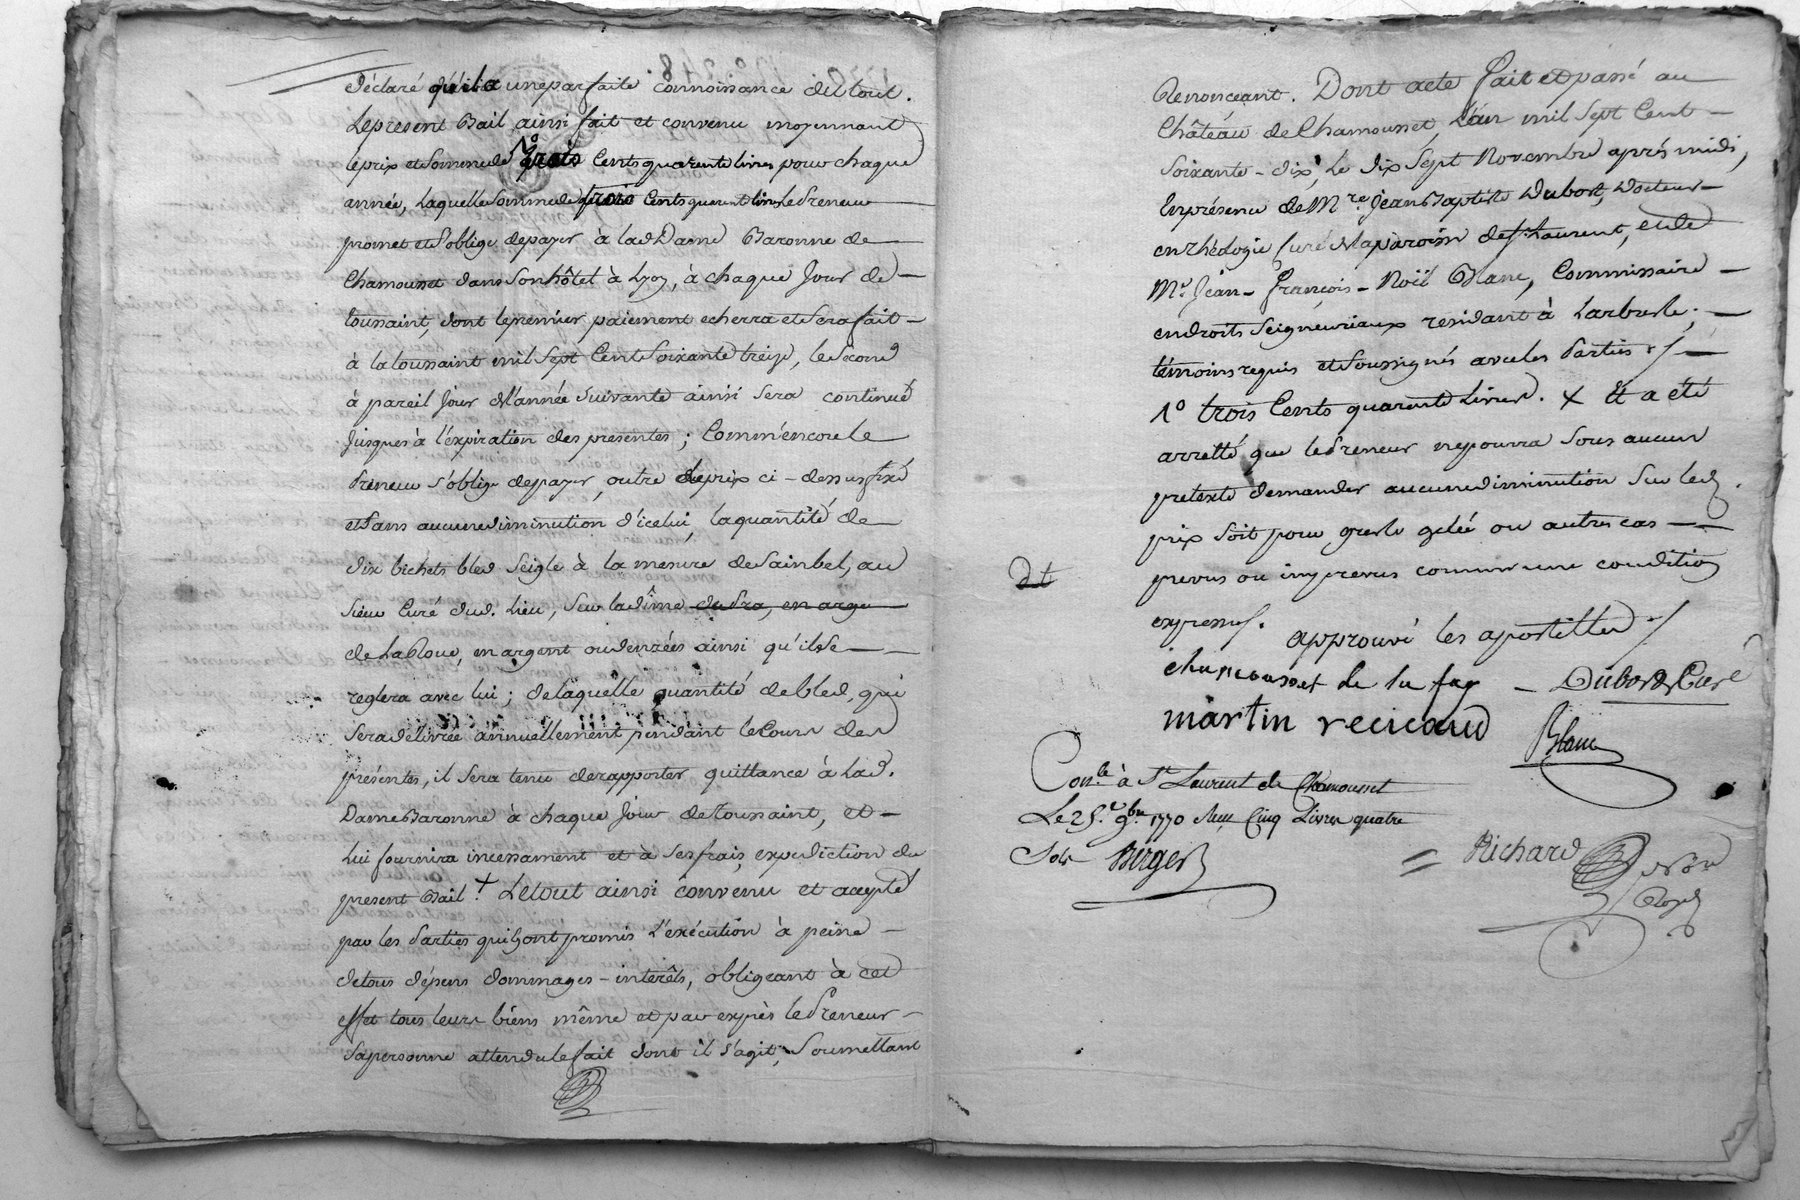 déclaré qu'il a une parfaite connoissance du tout.
Le present Bail ainsi fait et convenu moyennant
le prix et somme de 1° trois Cents quarente livres pour chaque
année, Laquelle somme de trois Cents quarent livres le Preneur
promet et S'oblige de payer à lad. Dame Baronne de
Chamousset dans Son hôtel à Lyon, à chaque Jour de
toussaint, dont le premier paiement echerra et Sera fait
à la toussaint mil Sept Cent Soixante treize, le second
à pareil Jour de l'année Suivante ainsi sera continué
Jusques à l'expiration des presentes; Comm'encore le
Preneur s'oblige de payer, outre le prix ci-dessus fixé
et Sans aucune diminution d'icelui, la quantité de
dix bichets bled Seigle à la mesure de Sainbel, au
Sieur Curé dud. Lieu, Sur la dîme
de Laloue, en argent ou denrées ainsi qu'il se
reglera avec lui; de laquelle quantité de bled, qui
Sera délivrée annuellement pendant le Cours des
présentes, il Sera tenu de rapporter quittance à Lad.
Dame Baronne à chaque Jour de Toussaint, et
Lui fournira incessament et à Ses frais, expediction du
present Bail. + Le tout ainsi convenu et accepté
par les Parties qui Sont promis l'exécution à peine
de tous dépens dommages-interêts, obligeant à cet
effet tous leurs biens même et par exprès le Preneur
Sa personne attendu le fait dont il s'agit, Soumettant
Renonceant. Dont acte fait et passé au
Château de Chamousset, L'an mil Sept Cent
Soixante-dix, Le dix Sept Novembre après midi,
En présence de Mre Jean Baptiste Dubost, Docteur
en théologie Curé de la paroisse de St. Laurent, et de
Mr. Jean-François-Noël Blanc, Commissaire
en droits Seigneuriaux residant à Larbresle;
témoins requis et Soussignés avec les Parties ./
1° trois Cents quarente Livres. + Il a été
arretté que le Preneur ne pourra Sous aucun
pretexte demander aucune diminution Sur led.
prix Soit pour gresle gelée ou autres cas
prevus ou imprevus comme une condition
expresse. approuvé les apostilles ./
chamousset de la fay Dubost Curé
martin recicaud Blanc
Conlé à St Laurent de Chamousset
Le 25e 9bre 1770 Reçu Cinq Livres quatre
Sols Berger
Richard